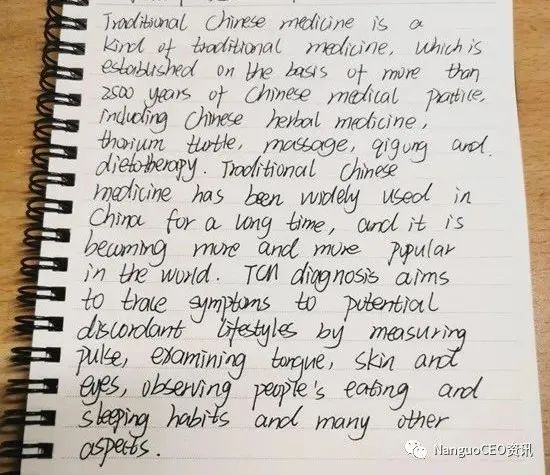 Traditional Chinese medicine is a
kind of traditional medicine, which is
established on the basis of more than
2500 years of Chinese medical practice,
including Chinese herbal medicine,
thorium turtle, massage, qigong and
dietotherapy. Traditional Chinese
medicine has been widely used in
China for a long time, and it is
becoming more and more popular
in the world. TCM diagnosis aims
to trace symptoms to potential
discordant lifestyles by measuring
pulse, examining tongue, skin and
eyes, observing people's eating and
sleeping habits and many other
aspects.
NanguoCEO资讯